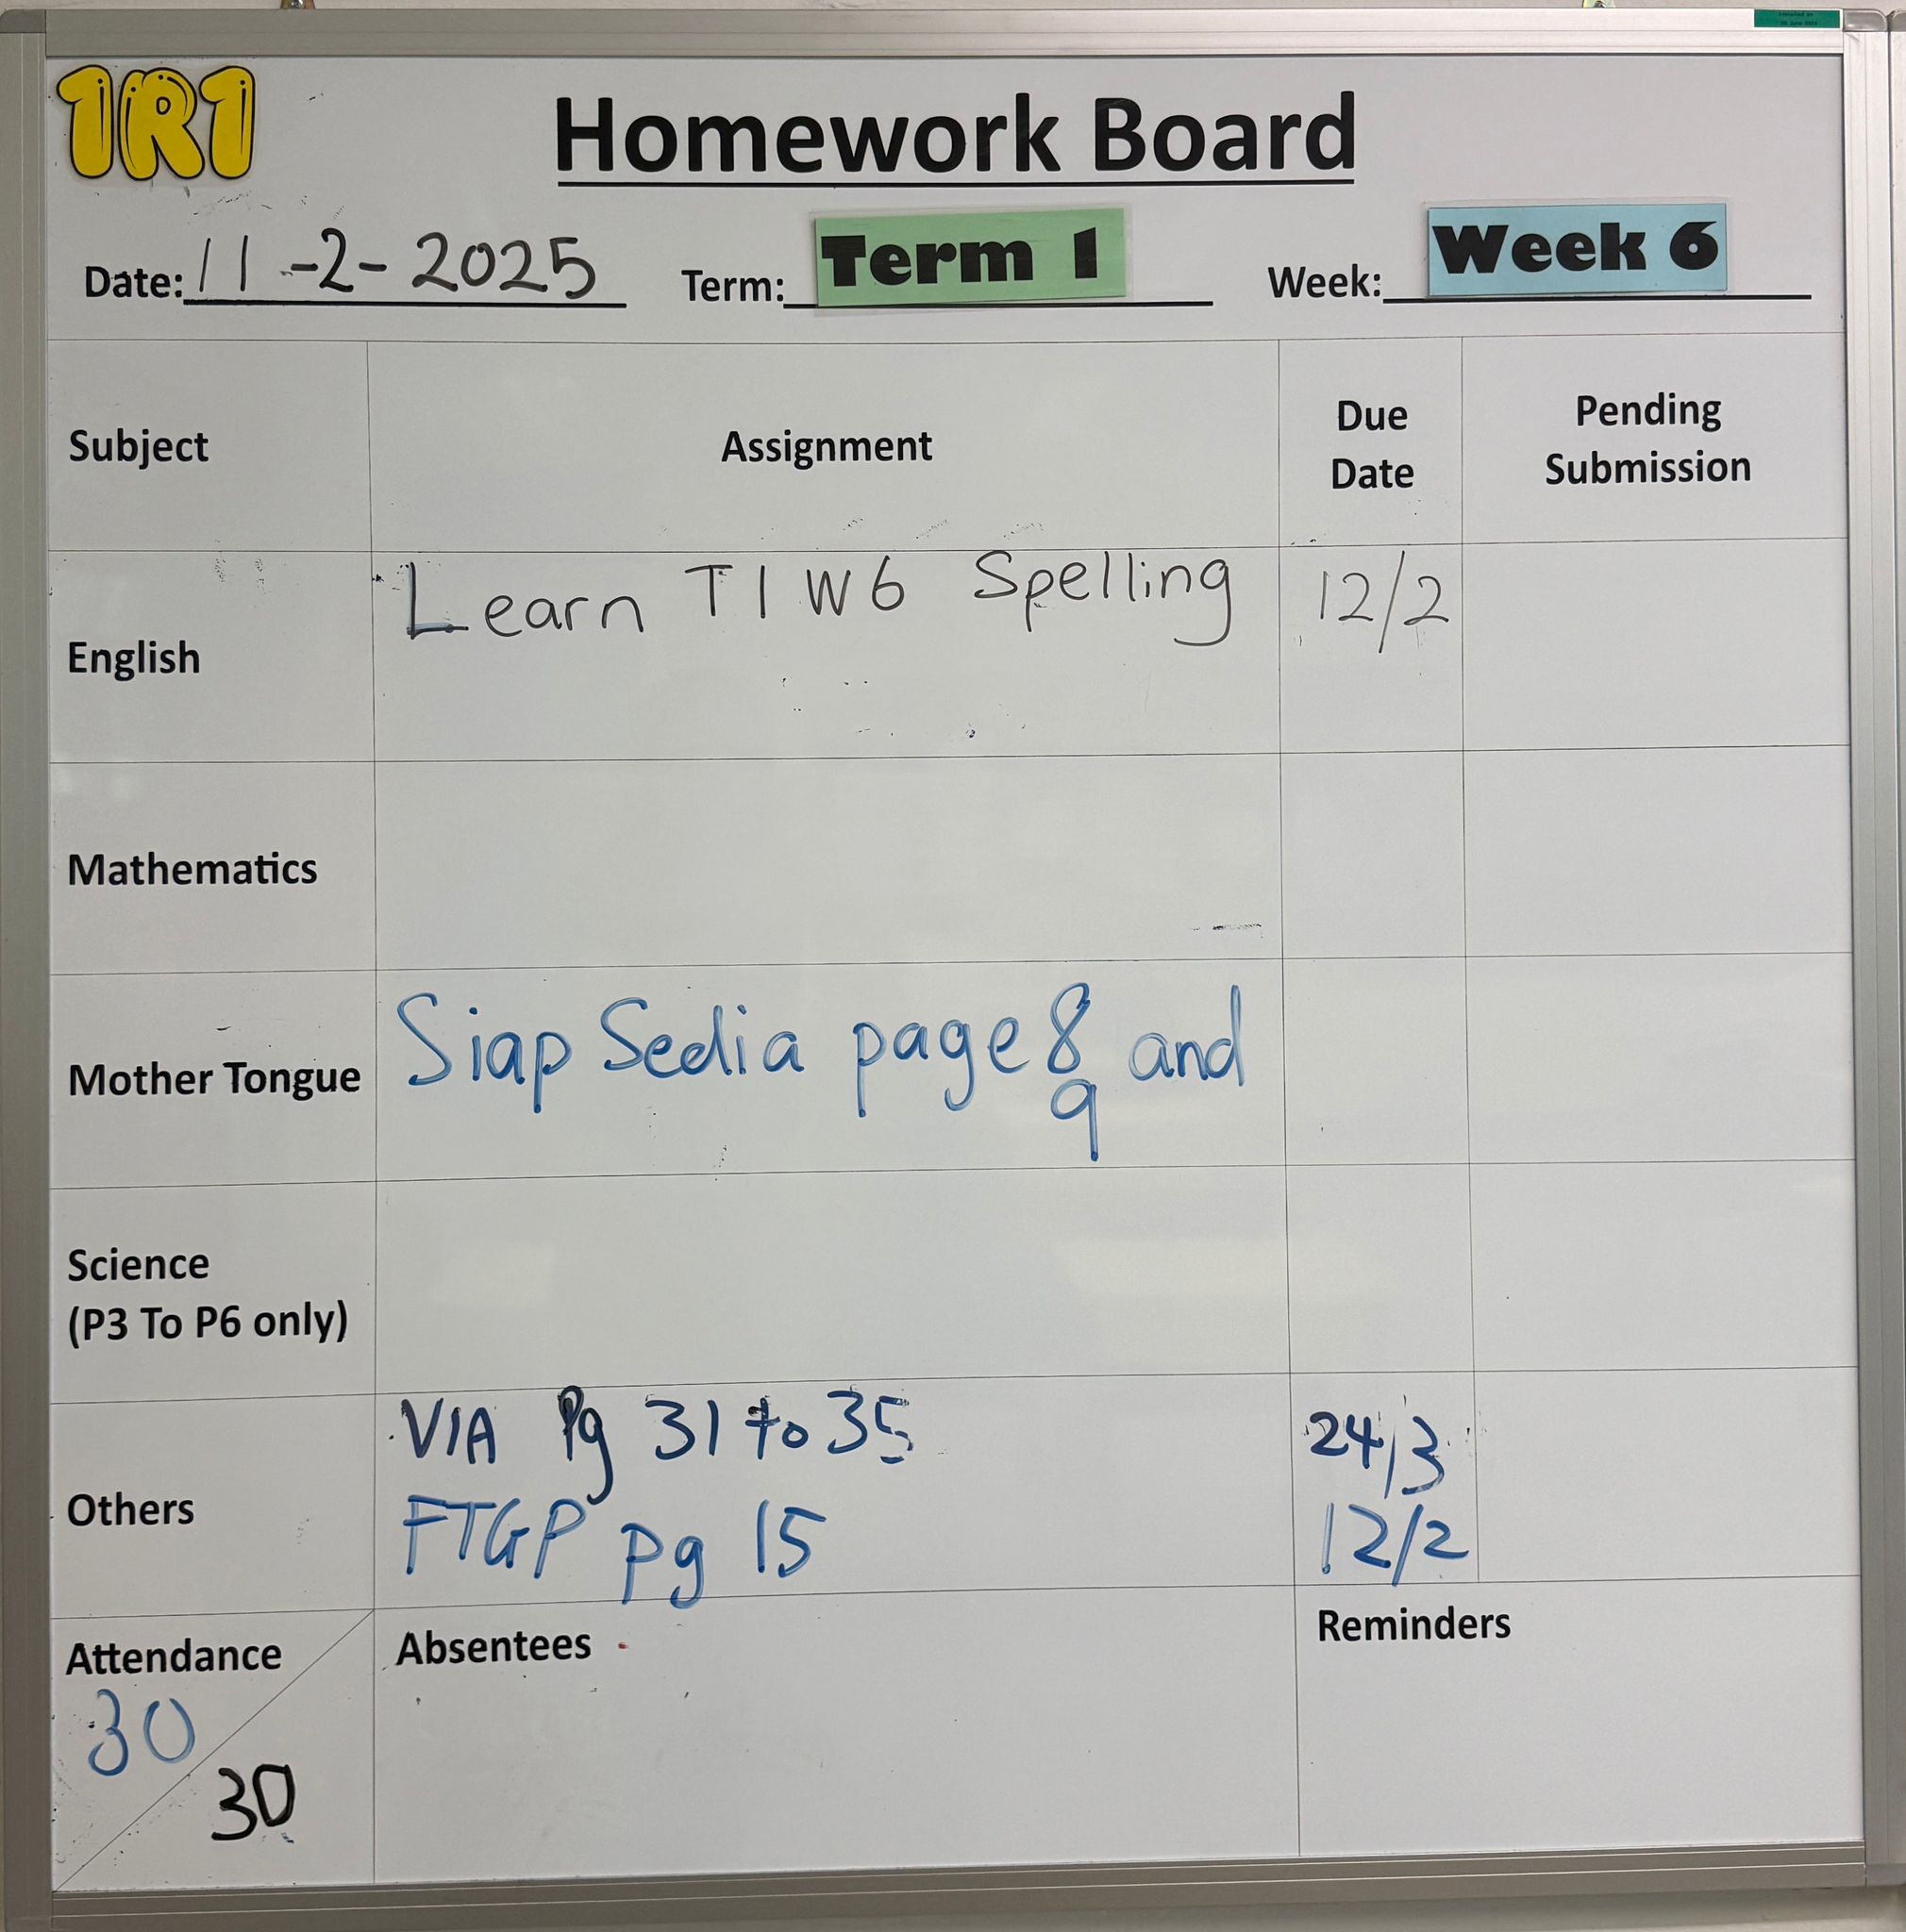 1R1
Homework Board
Date: 11-2-2025 Term: Term 1 Week: Week 6
Subject Assignment Due Date Pending Submission
English Learn T1W6 Spelling 12/2
Mathematics
Mother Tongue Siap Sedia page 8 and
9
Science
(P3 To P6 only)
Others
VIA Pg 31 to 35 24/3
FTGP pg 15 12/2
Attendance
30
30
Absentees
Reminders